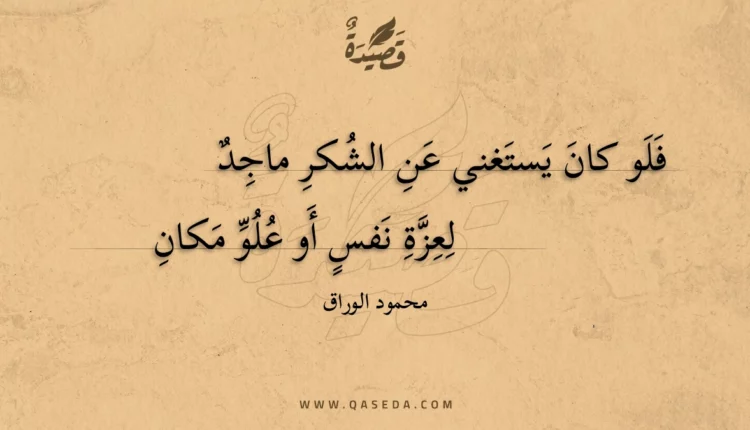 قَصِيْدَةٌ
فَلَو كانَ يَستَغني عَنِ الشُكرِ ماجِدٌ
لِعِزَّةِ نَفسٍ أَو عُلُوِّ مَكانِ
محمود الوراق
WWW.QASEDA.COM